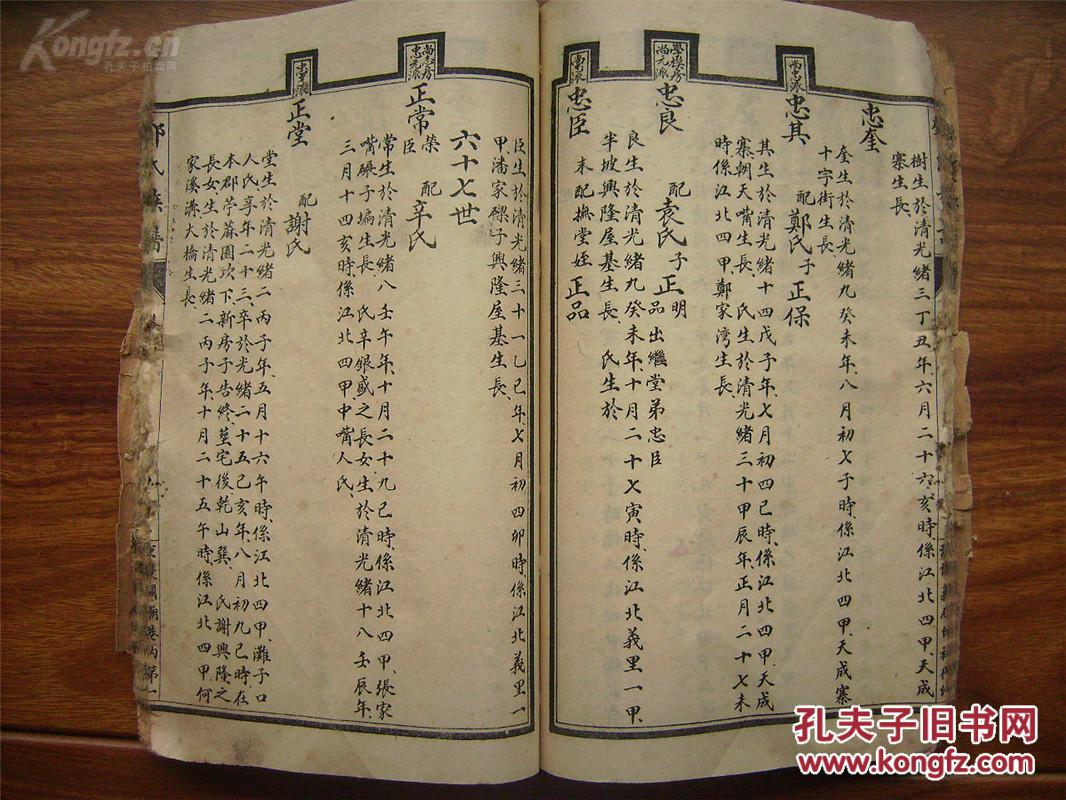 樹生於清光緒三丁丑年六月二十六亥時係江北四甲天成
寨生長
忠奎
奎生於清光緒九癸未年八月初七子時係江北四甲天成寨
十字街生長
尚忠派
忠其
配鄭氏子正保
其生於清光緒十四戊子年七月初四巳時係江北四甲天成
寨朝天嘴生長氏生於清光緒三十甲辰年正月二十七未
時係江北四甲鄭家湾生長
學模房
尚元派
忠良
配袁氏子正明
品出繼堂弟忠臣
良生於清光緒九癸未年十月二十七寅時係江北義里一甲
半坡興隆屋基生長氏生於
忠臣
未配撫堂姪正品
臣生於清光緒三十一乙巳年七月初四卯時係江北義里一
甲潘家礫子興隆屋基生長
六十七世
尚志房
忠元派
正常
榮
臣
配辛氏
常生於清光緒八壬午年十月二十九巳時係江北四甲張家
嘴碾子塥生長氏辛銀盛之長女生於清光緒十八壬辰年
三月十四亥時係江北四甲中嘴人氏
正堂
配謝氏
堂生於清光緒二丙子年五月十六午時係江北四甲灘子口
人氏享年二十三卒於光緒二十五己亥年八月初九巳時在
本郡苧蔴園坎下新房子告終塟宅後乾山巽氏謝興隆之
長女生於清光緒二丙子年十月二十五午時係江北四甲何
家溪溝大橋生長
Kongfz.cn
孔夫子拍卖网
孔夫子旧书网
www.kongfz.com